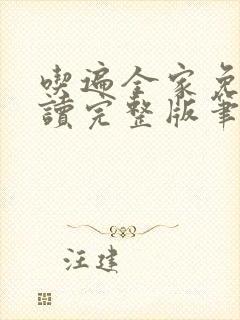 喫遍全家免
讀完整版筆
汪建